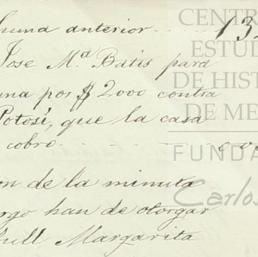 Suma anterior 13
Jose Mª Batis para
una por $ 2000 contra
Potosí, que la casa
cobro
on de la minuta
rgo han de otorgar
ull Margarita
CENTR
ESTUD
DE HIST
DE ME
FUNDA
Carlos